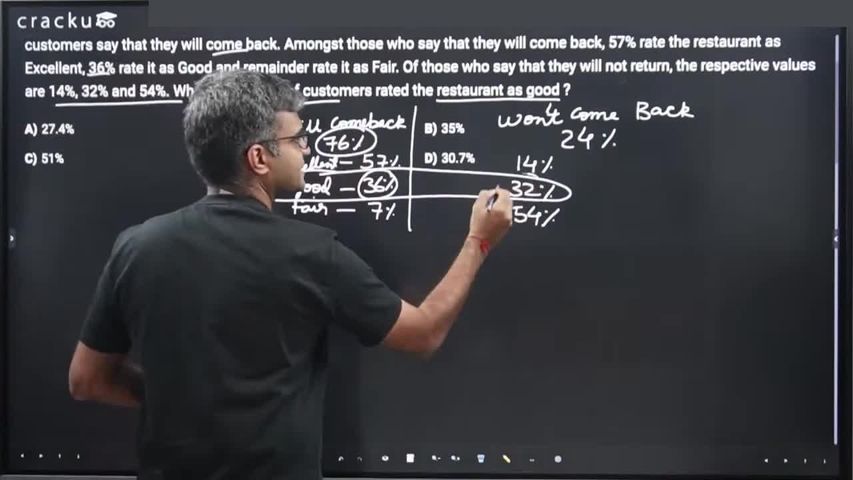 cracku
customers say that they will come back. Amongst those who say that they will come back, 57% rate the restaurant as
Excellent, 36% rate it as Good and remainder rate it as Fair. Of those who say that they will not return, the respective values
are 14%, 32% and 54%. Wh customers rated the restaurant as good ?
A) 27.4%
B) 35%
C) 51%
D) 30.7%
comeback
76%
57%
36%
fair - 7%
won't come Back
24%
14%
32%
54%